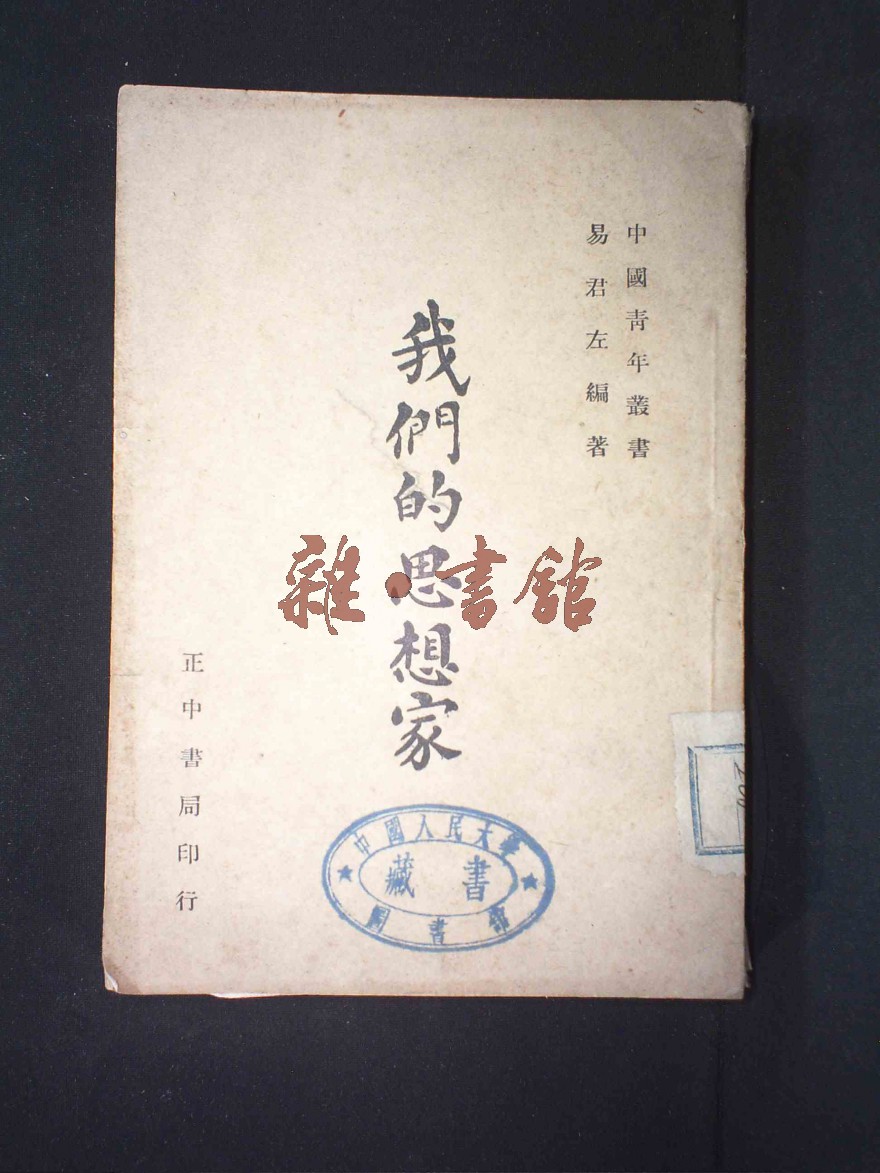 中國青年叢書
易君左編著
我們的思想家
正中書局印行
雜·書館
中國人民大學
書藏
圖書館